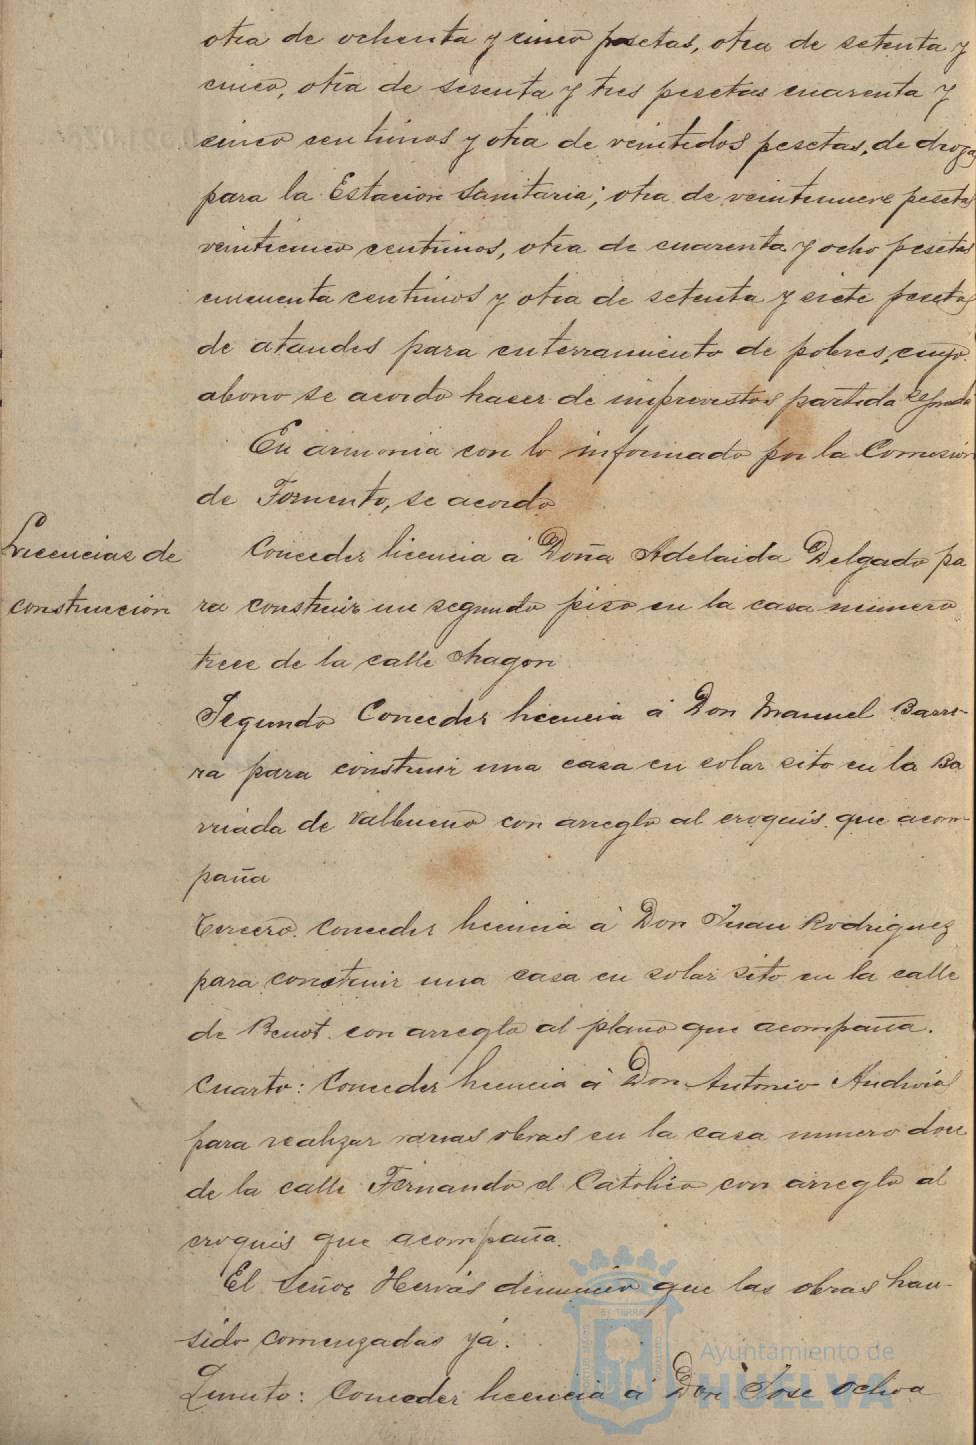 otra de ochenta y cinco pesetas, otra de setenta y
cinco, otra de sesenta y tres pesetas cuarenta y
cinco centimos y otra de veintidos pesetas, de drogas
para la Estacion Sanitaria; otra de veintinueve pesetas
veinticinco centimos, otra de cuarenta y ocho pesetas
cincuenta centimos y otra de setenta y siete pesetas
de ataudes para enterramiento de pobres, cuyo
abono se acordo hacer de imprevistos partida
En armonia con lo informado por la Comision
de Fomento, se acordo
Licencias de
construccion
Conceder licencia á Doña Adelaida Delgado pa
ra construir un segundo piso en la casa numero
trece de la calle Aragon
Segundo Conceder licencia á Don Manuel Barre-
ra para construir una casa en solar sito en la Ba
rriada de Vallbueno con arreglo al croquis que acom-
paña
Tercero. Conceder licencia á Don Juan Rodriguez
para construir una casa en solar sito en la calle
de Benot con arreglo al plano que acompaña.
Cuarto: Conceder licencia á Don Antonio
para realizar varias obras en la casa numero doce
de la calle Fernando el Católico con arreglo al
croquis que acompaña.
El Señor Hervás denunció que las obras han
sido comenzadas yá.
Quinto: Conceder licencia á Don José Ochoa
Ayuntamiento de
HUELVA